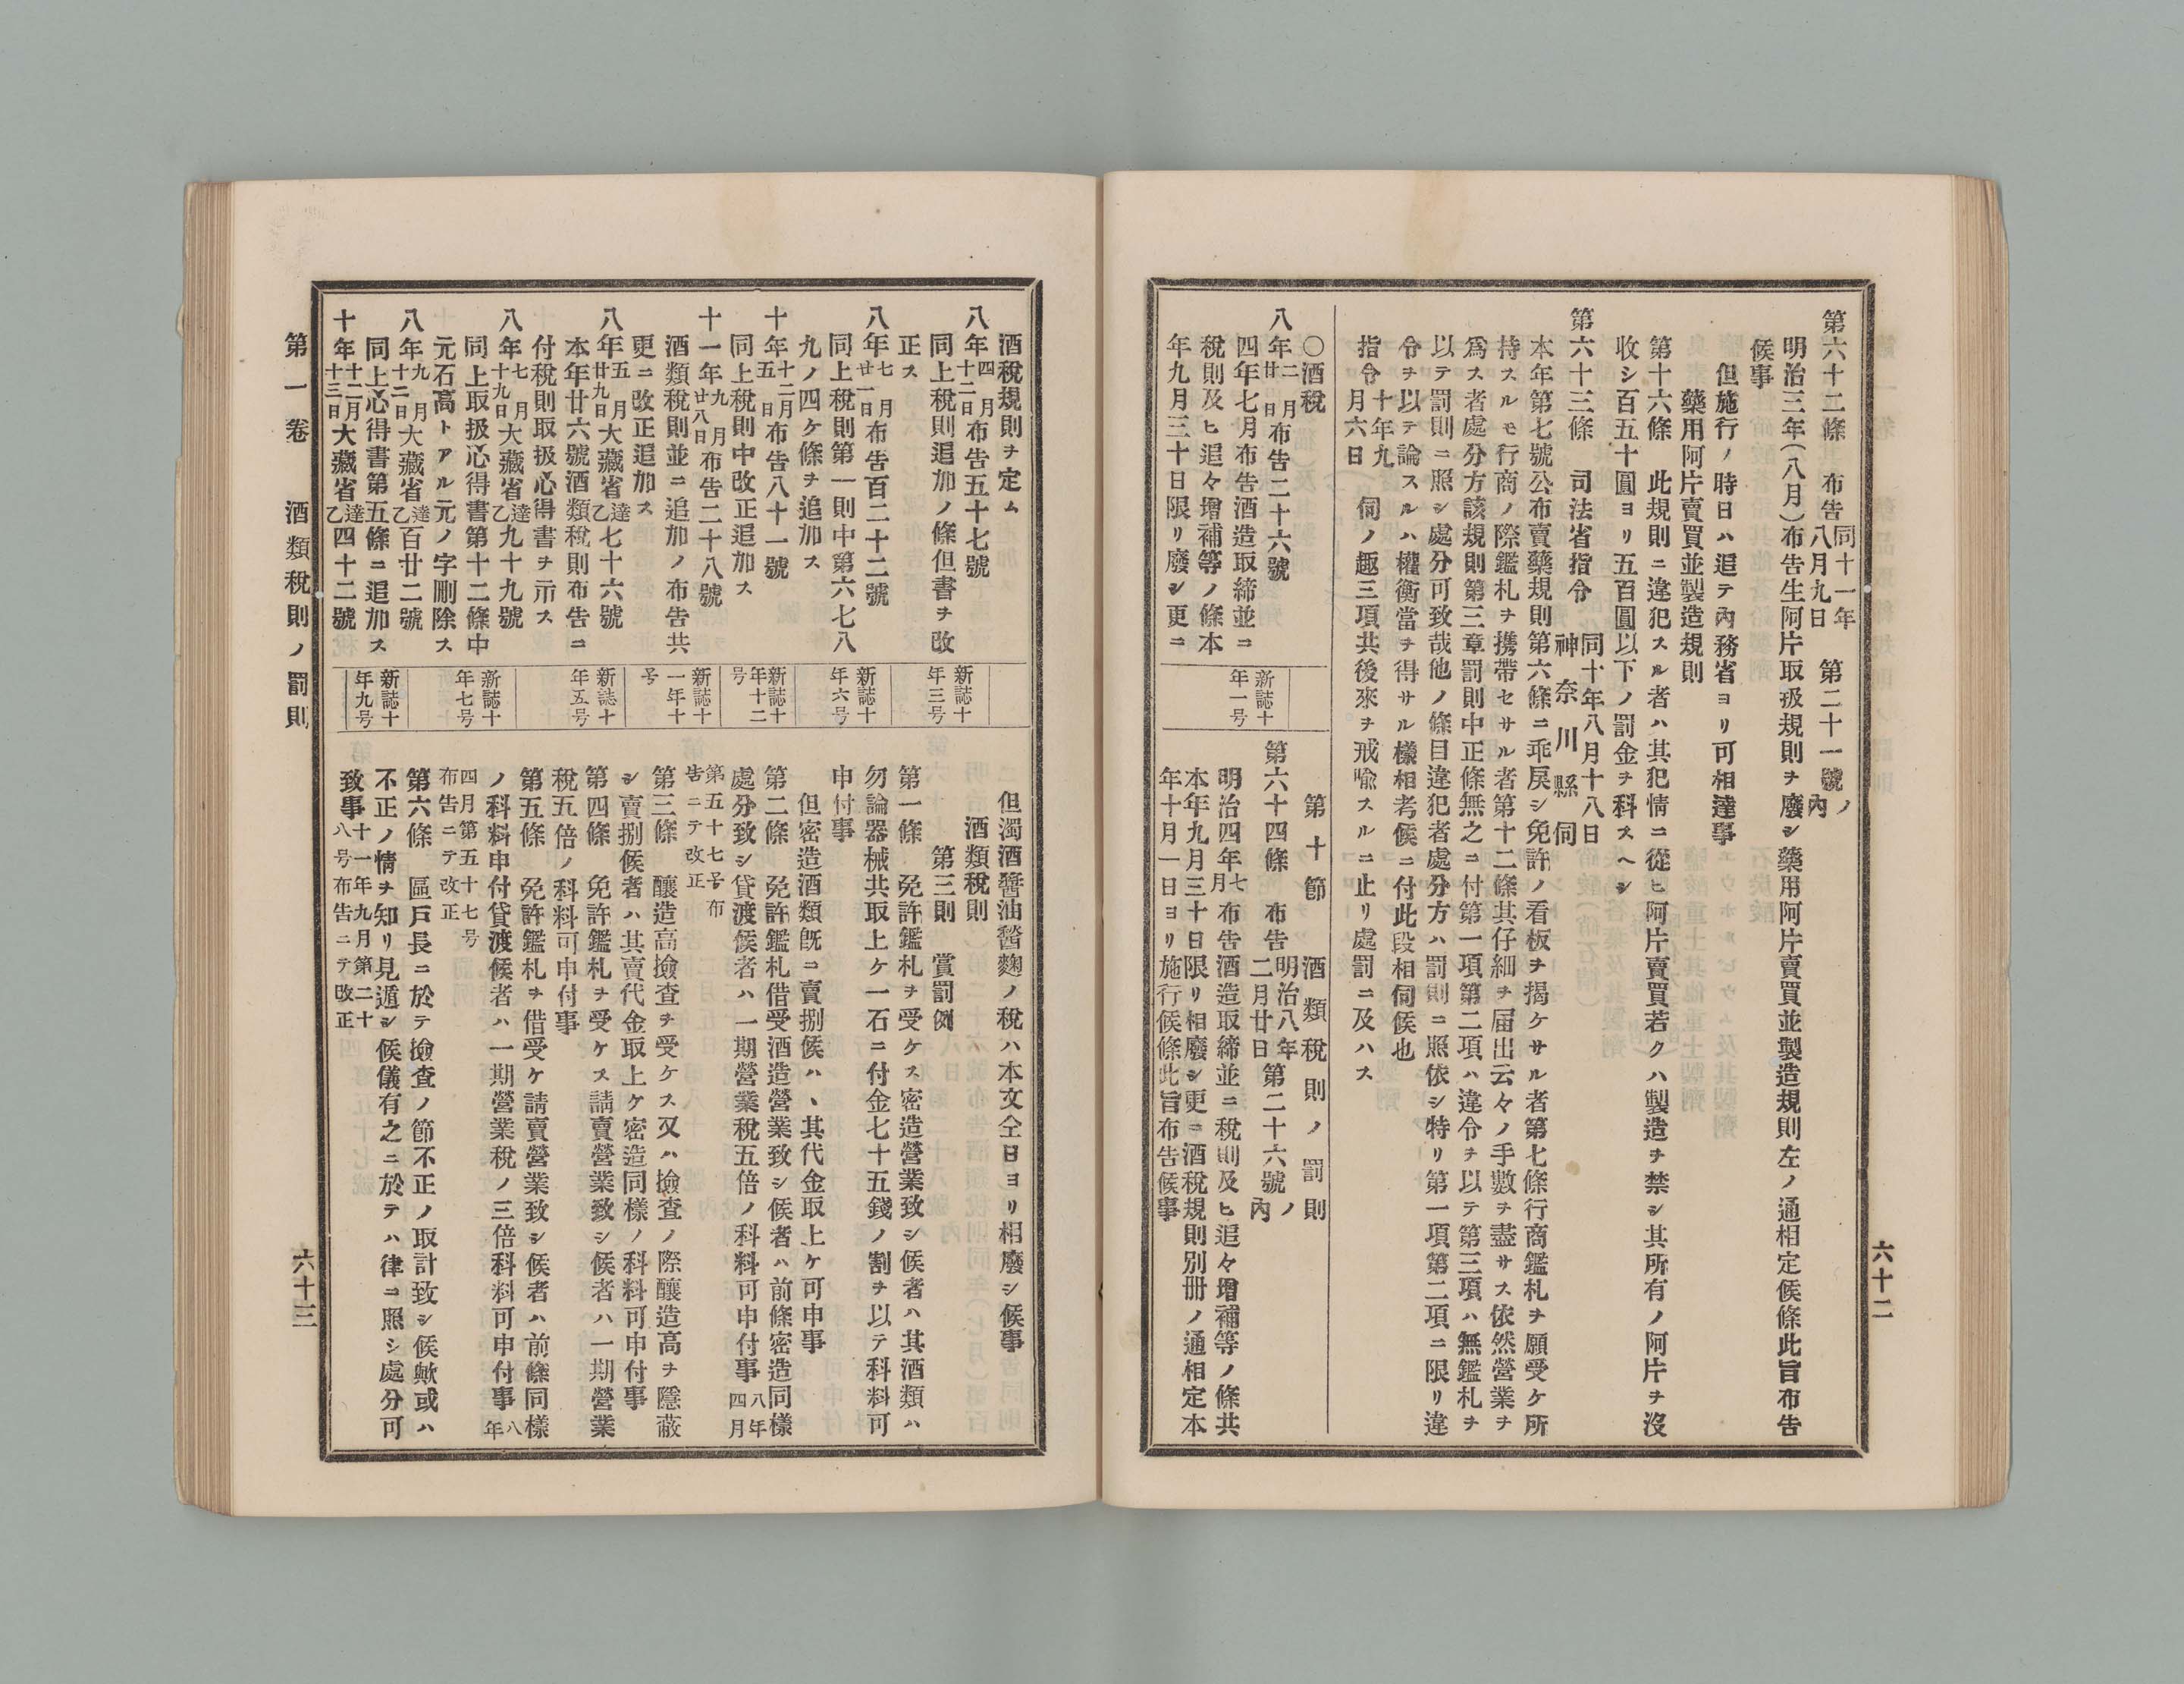 第六十二條　布告同十一年八月九日　第二十一號ノ內
明治三年（八月）布告生阿片取扱規則ヲ廢シ藥用阿片賣買並製造規則左ノ通相定候條此旨布告
候事
但施行ノ時日ハ追テ內務省ヨリ可相達事
藥用阿片賣買並製造規則
第十六條　此規則ニ違犯スル者ハ其犯情ニ從ヒ阿片賣買若クハ製造ヲ禁シ其所有ノ阿片ヲ沒
收シ百五十圓ヨリ五百圓以下ノ罰金ヲ科スヘシ
第六十三條　司法省指令　同十年八月十八日神奈川縣伺
本年第七號公布賣藥規則第六條ニ乖戾シ免許ノ看板ヲ揭ケサル者第七條行商鑑札ヲ願受ケ所
持スルモ行商ノ際鑑札ヲ攜帶セサル者第十二條其仔細ヲ届出云々ノ手數ヲ盡サス依然營業ヲ
爲ス者處分方該規則第三章罰則中正條無之ニ付第一項第二項ハ違令ヲ以テ第三項ハ無鑑札ヲ
以テ罰則ニ照シ處分可致哉他ノ條目違犯者處分方ハ罰則ニ照依シ特リ第一項第二項ニ限リ違
令ヲ以テ論スルハ權衡當ヲ得サル樣相考候ニ付此段相伺候也
指令十年九月六日　伺ノ趣三項共後來ヲ戒喩スルニ止リ處罰ニ及ハス
〇酒稅
八年二月廿日布告二十六號
四年七月布告酒造取締並ニ
稅則及ヒ追々增補等ノ條本
年九月三十日限リ廢シ更ニ
新誌十年一号
第十節　酒類稅則ノ罰則
第六十四條　布告明治八年二月廿日第二十六號ノ內
明治四年七月布告酒造取締並ニ稅則及ヒ追々增補等ノ條共
本年九月三十日限リ相廢シ更ニ酒稅規則別冊ノ通相定本
年十月一日ヨリ施行候條此旨布告候事
六十二
酒稅規則ヲ定ム
八年四月十二日布告五十七號
同上稅則追加ノ條但書ヲ改
正ス
八年七月廿一日布告百二十二號
同上稅則第一則中第六七八
九ノ四ケ條ヲ追加ス
十年十二月五日布告八十一號
同上稅則中改正追加ス
十一年九月廿八日布告二十八號
酒類稅則並ニ追加ノ布告共
更ニ改正追加ス
八年五月廿九日大藏省乙達七十六號
本年廿六號酒類稅則布告ニ
付稅則取扱心得書ヲ示ス
八年七月十九日大藏省乙達九十九號
同上取扱心得書第十二條中
元石高トアル元ノ字刪除ス
八年九月十二日大藏省乙達百廿二號
同上心得書第五條ニ追加ス
十年十二月十三日大藏省乙達四十二號
新誌十年三号
新誌十年六号
新誌十年十二号
新誌十一年十号
新誌十年五号
新誌十年七号
新誌十年九号
但濁酒醬油醫麴ノ稅ハ本文仝日ヨリ相廢シ候事
酒類稅則
第三則　賞罰例
第一條　免許鑑札ヲ受ケス密造營業致シ候者ハ其酒類ハ
勿論器械共取上ケ一石ニ付金七十五錢ノ割ヲ以テ科料可
申付事
但密造酒類旣ニ賣捌候ハヽ其代金取上ケ可申事
第二條　免許鑑札借受酒造營業致シ候者ハ前條密造同樣
處分致シ貸渡候者ハ一期營業稅五倍ノ科料可申付事八年四月
第五十七号布告ニテ改正
第三條　釀造高撿查ヲ受ケス又ハ撿查ノ際釀造高ヲ隱蔽
シ賣捌候者ハ其賣代金取上ケ密造同樣ノ科料可申付事
第四條　免許鑑札ヲ受ケス請賣營業致シ候者ハ一期營業
稅五倍ノ科料可申付事
第五條　免許鑑札ヲ借受ケ請賣營業致シ候者ハ前條同樣
ノ科料申付貸渡候者ハ一期營業稅ノ三倍科料可申付事八年
四月第五十七号布告ニテ改正
第六條　區戶長ニ於テ撿查ノ節不正ノ取計致シ候歟或ハ
不正ノ情ヲ知リ見遁シ候儀有之ニ於テハ律ニ照シ處分可
致事十一年九月第二十八号布告ニテ改正
第一卷　酒類稅則ノ罰則
六十三